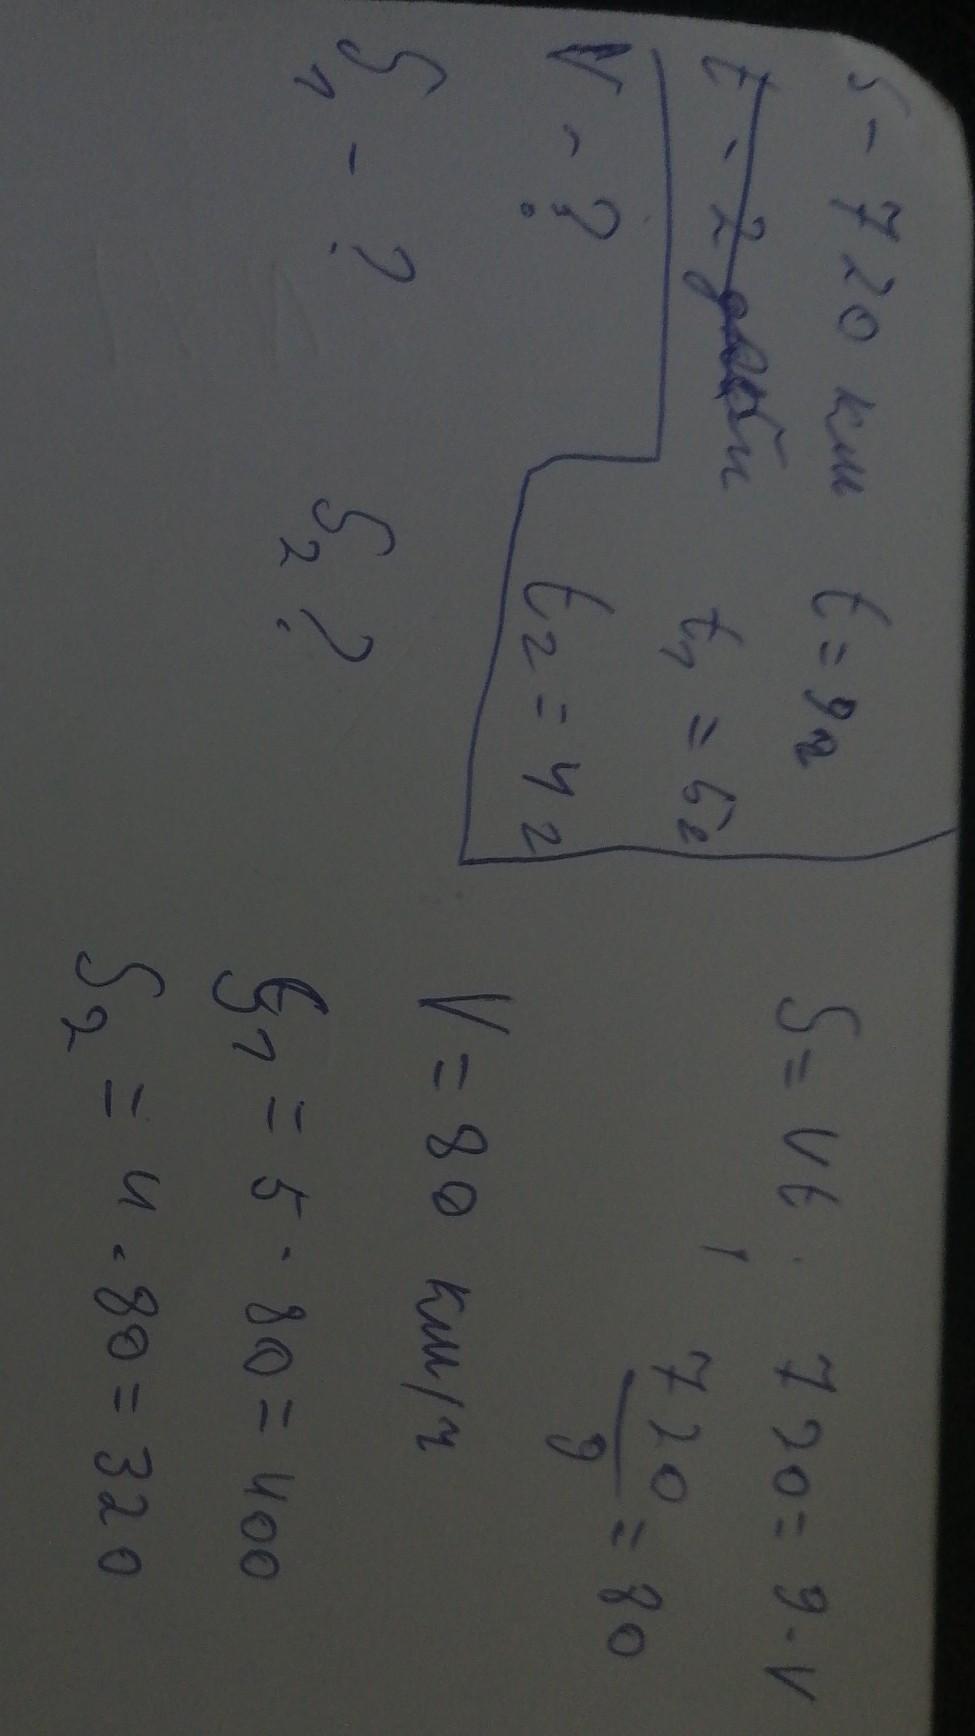 S - 720 км t = 9ч
t - 2 t₁ = 5ч
V - ? t₂ = 4ч
S₁ - ? S₂ ?
S = Vt; 720 = 9·V
720/9 = 80
V = 80 км/ч
S₁ = 5·80 = 400
S₂ = 4·80 = 320